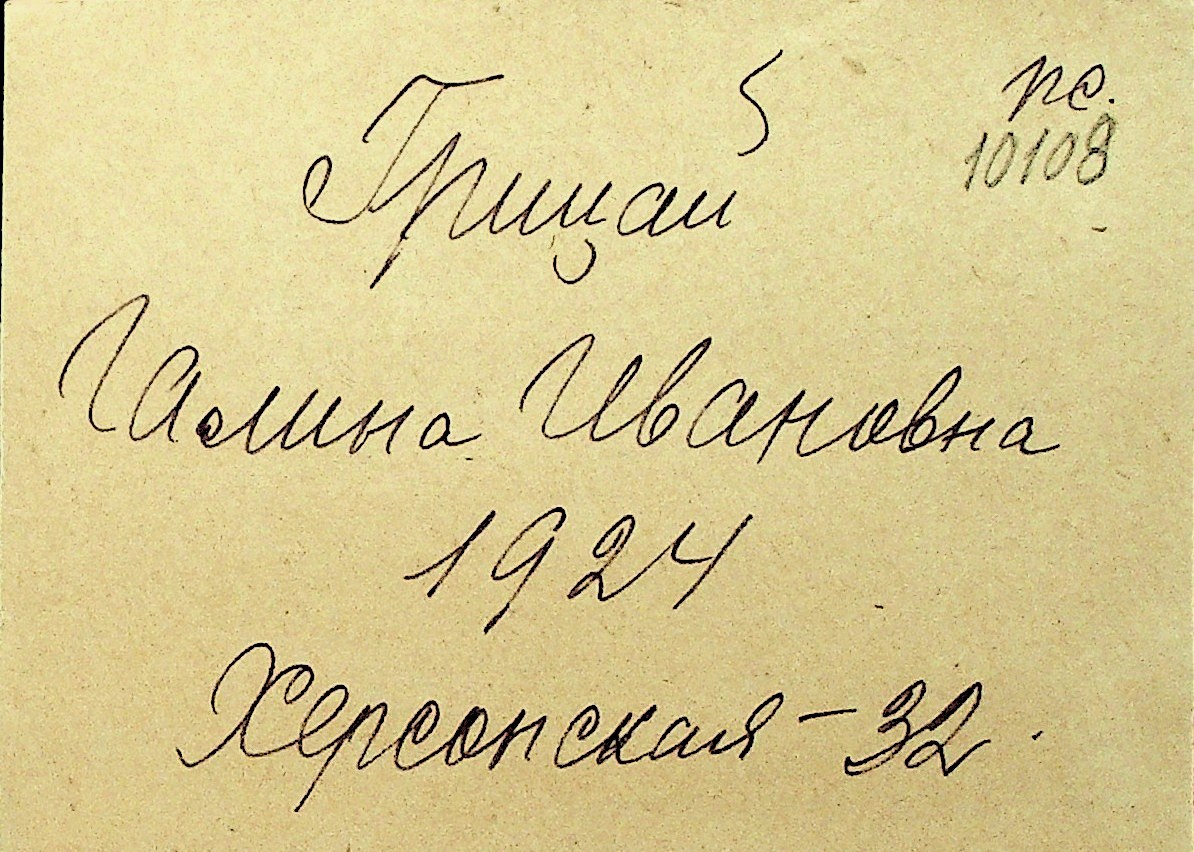 рс.
10108
Грицай
Галина Ивановна
1924
Херсонская - 32.